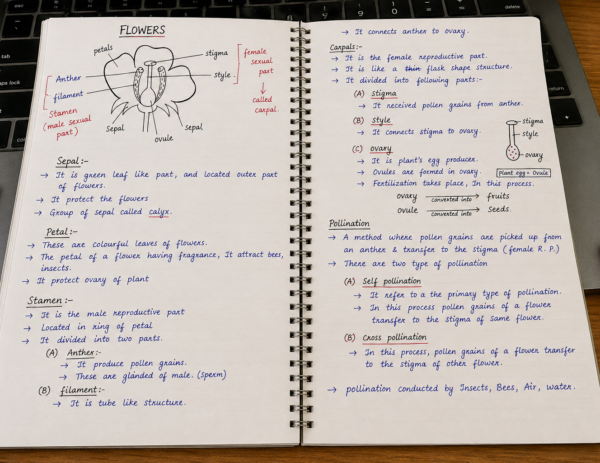 FLOWERS
petals
stigma
style
female
sexual
part
called
carpal.
Anther
filament
Stamen
(male sexual
part)
Sepal
sepal
ovule
Sepal:-
→ It is green leaf like part, and located outer part
of flowers.
→ It protect the flowers
→ Group of sepal called calyx.
Petal:-
→ These are colourful leaves of flowers.
→ The petal of a flower having fragrance, It attract bees,
insects.
→ It protect ovary of plant
Stamen:-
→ It is the male reproductive part
→ Located in ring of petal
→ It divided into two parts.
(A) Anther:-
→ It produce pollen grains.
→ These are glanded of male. (Sperm)
(B) filament:-
→ It is tube like structure.
→ It connects anther to ovary.
Carpals:-
→ It is the female reproductive part.
→ It is like a thin flask shape structure.
→ It divided into following parts:-
(A) stigma
→ It received pollen grains from anther.
(B) style
→ It connects stigma to ovary.
(C) ovary
→ It is plant's egg producer.
→ Ovules are formed in ovary.
→ Fertilization takes place, In this process.
stigma
style
ovary
Plant egg = Ovule
ovary converted into fruits
ovule converted into Seeds.
Pollination
→ A method where pollen grains are picked up from
an anther & transfer to the stigma (female R. P.)
→ There are two type of pollination
(A) Self pollination
→ It refer to a the primary type of pollination.
→ In this process pollen grains of a flower
transfer to the stigma of same flower.
(B) cross pollination
→ In this process, pollen grains of a flower transfer
to the stigma of other flower.
→ pollination conducted by Insects, Bees, Air, water.